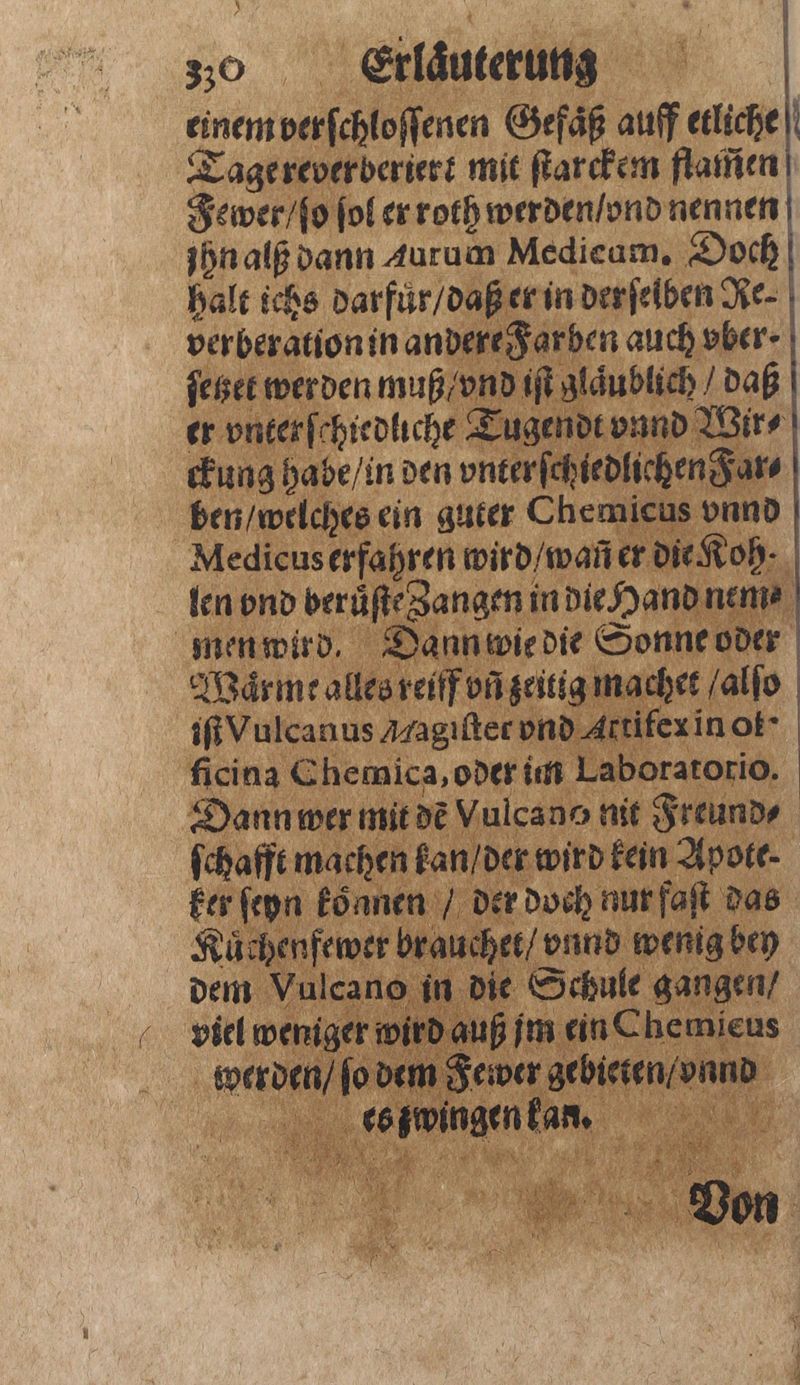 330 Erlaͤuterung
einem verſchloſſenen Gefaͤß auff etliche
Tage reverberiert mit ſtarckem flam̃en
Fewer/ſo ſol er roth werden/vnd nennen
jhn alß dann Aurum Medicum. Doch
halt ichs darfuͤr/daß er in derſelben Re-
verberation in andere Farben auch vber-
ſetzet werden muß/vnd iſt glaͤublich / daß
er vnterſchiedliche Tugendt vnnd Wir-
ckung habe/in den vnterſchiedlichen Far-
ben/welches ein guter Chemicus vnnd
Medicus erfahren wird/wañ er die Koh-
len vnd beruͤſte Zangen in die Hand nem-
men wird. Dann wie die Sonne oder
Waͤrme alles reiff vñ zeitig machet /alſo
iſt Vulcanus Magiſter vnd Artifex in of-
ficina Chemica, oder im Laboratorio.
Dann wer mit dẽ Vulcano nit Freund-
ſchafft machen kan/der wird kein Apote-
ker ſeyn koͤnnen / der doch nur faſt das
Kuͤchenfewer brauchet/ vnnd wenig bey
dem Vulcano in die Schule gangen/
viel weniger wird auß jm ein Chemicus
werden/ ſo dem Fewer gebieten/vnnd
es zwingen kan.
Von